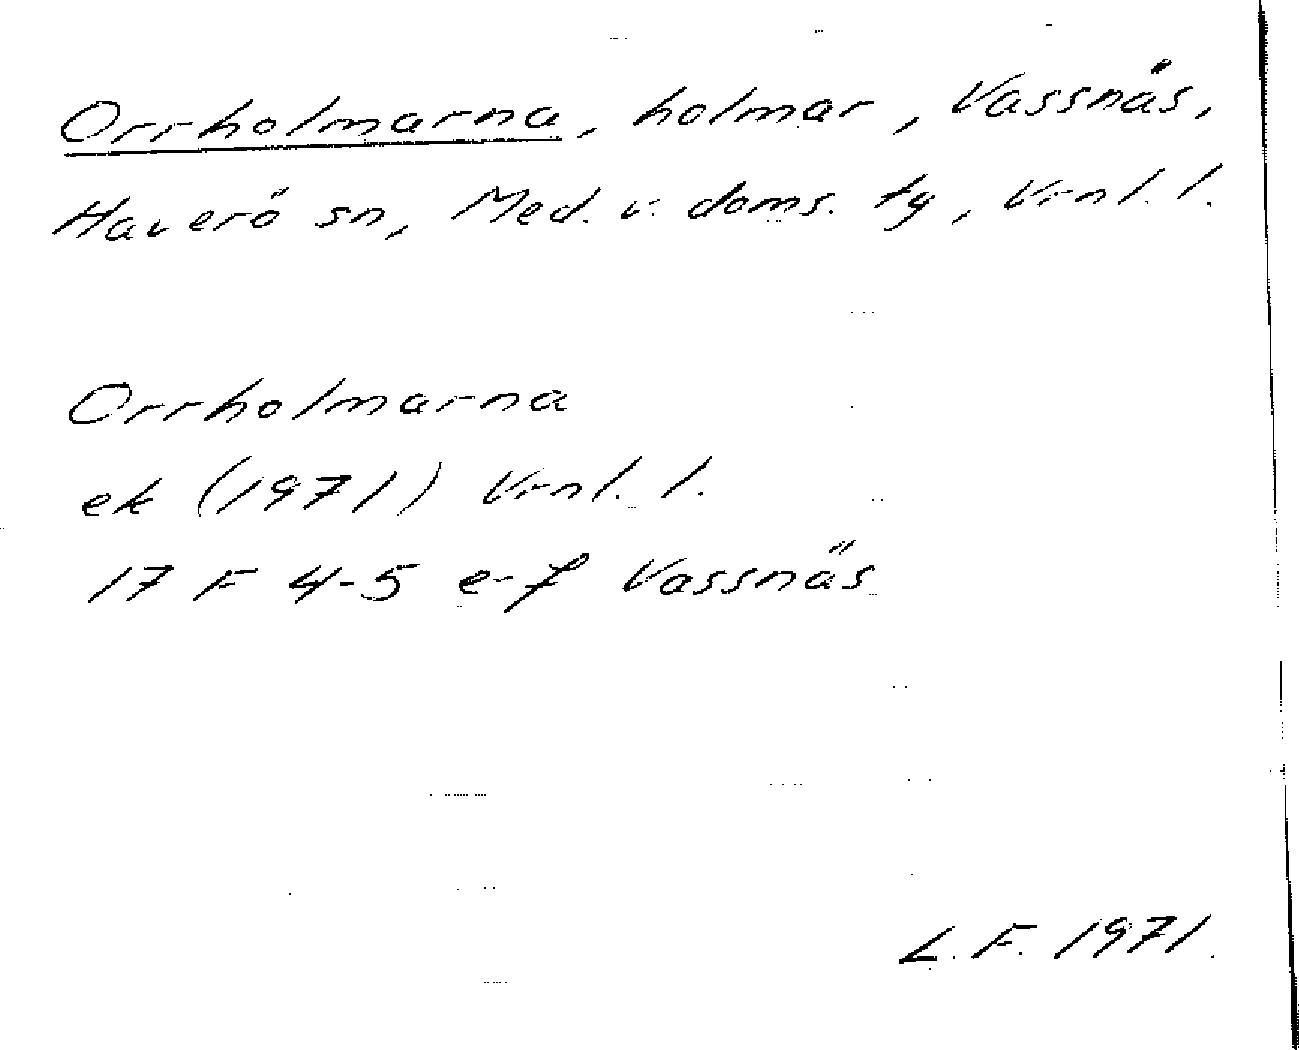 Orrholmarna, holmar, Vassnäs,
Haverö sn, Med. v. doms. tg, Vrnl. l.
Orrholmarna
ek (1971) Vrnl. l.
17 F 4-5 e-f Vassnäs
L. F. 1971.